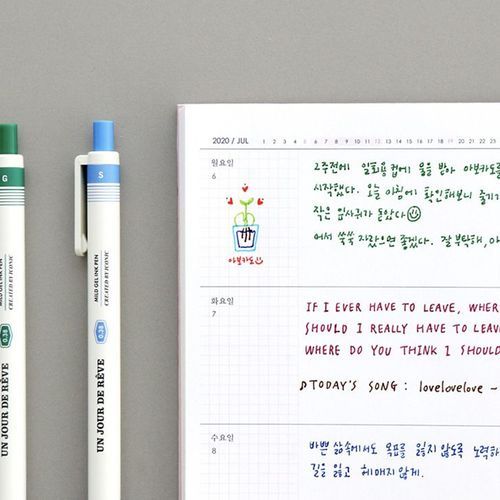 G
MILD GEL INK PEN
CREATED BY ICONIC
0.38
UN JOUR DE RÊVE
S
MILD GEL INK PEN
CREATED BY ICONIC
0.38
UN JOUR DE RÊVE
2020 / JUL 1 2 3 4 5 6 7 8 9 10 11 12 13 14 15 16 17 18 19 20
월요일
6
2주전에 일회용 컵에 물을 받아 아보카도를
시작했다. 오늘 아침에 확인해보니 줄기가
작은 잎사귀가 돋았다
어서 쑥쑥 자랐으면 좋겠다. 잘 부탁해, 아
아보카도
화요일
7
IF I EVER HAVE TO LEAVE, WHER
SHOULD I REALLY HAVE TO LEAV
WHERE DO YOU THINK I SHOULD
TODAY'S SONG : lovelovelove –
수요일
8
바쁜 삶속에서도 목표를 잃지 않도록 노력하
길을 잃고 헤매지 않게.